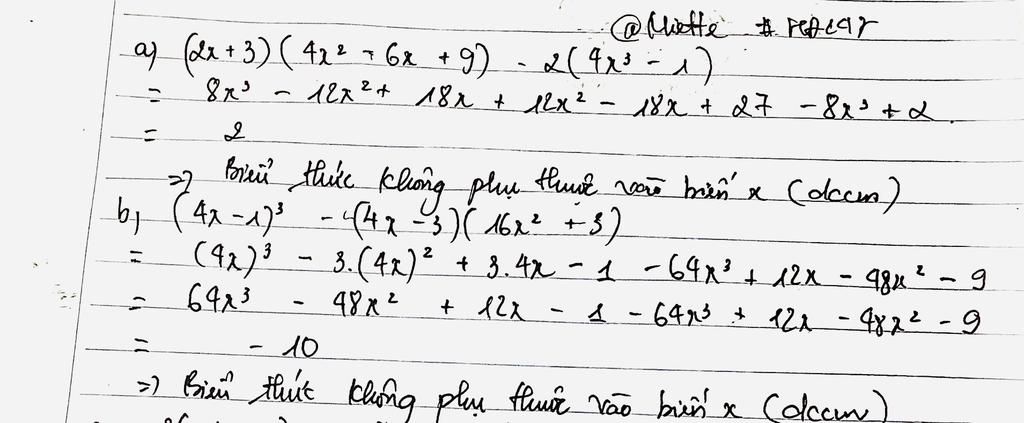 @Miette #
a) (2x + 3)(4x² - 6x + 9) - 2(4x³ - 1)
= 8x³ - 12x² + 18x + 12x² - 18x + 27 - 8x³ + 2
= 2
=> Biểu thức không phụ thuộc vào biến x (đccm)
b, (4x - 1)³ - (4x - 3)(16x² + 3)
= (4x)³ - 3.(4x)² + 3.4x - 1 - 64x³ + 12x - 48x² - 9
= 64x³ - 48x² + 12x - 1 - 64x³ + 12x - 48x² - 9
= - 10
=> Biểu thức không phụ thuộc vào biến x (đccm)